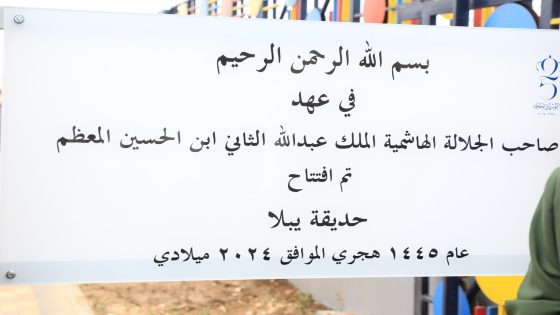 بسم الله الرحمن الرحيم
في عهد
صاحب الجلالة الهاشمية الملك عبدالله الثاني ابن الحسين المعظم
تم افتتاح
حديقة يبلا
عام ١٤٤٥ هجري الموافق ٢٠٢٤ ميلادي